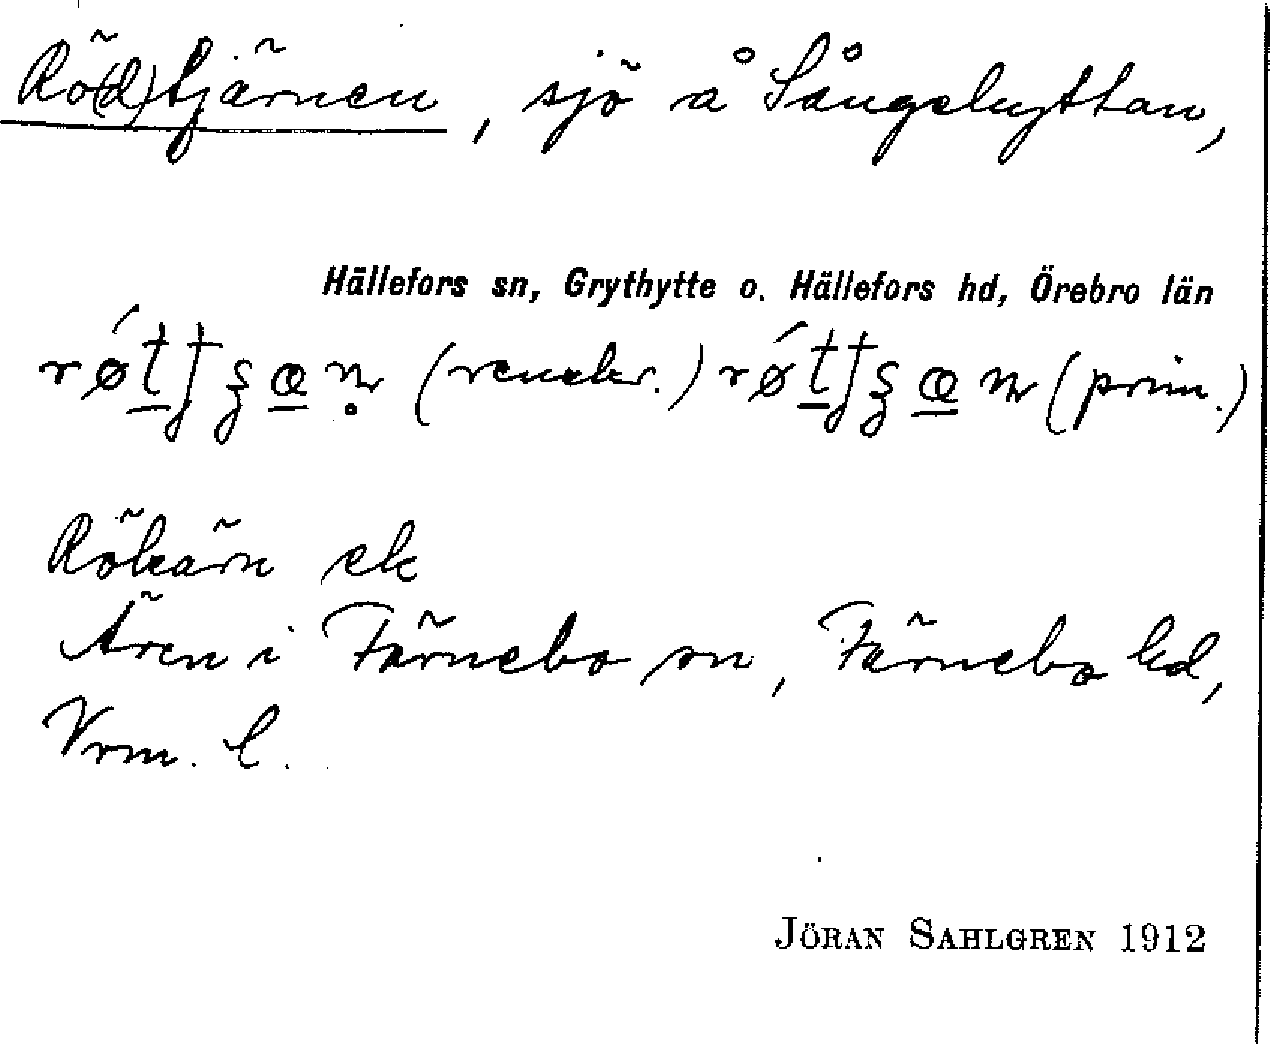 Rö(d)tjärnen, sjö å Sångshyttan,
Hällefors sn, Grythytte o. Hällefors hd, Örebro län
(renskr.) (prim.)
Rökärn ek
Ären i Färnebo sn, Färnebo hd,
Vrm. l.
JÖRAN SAHLGREN 1912